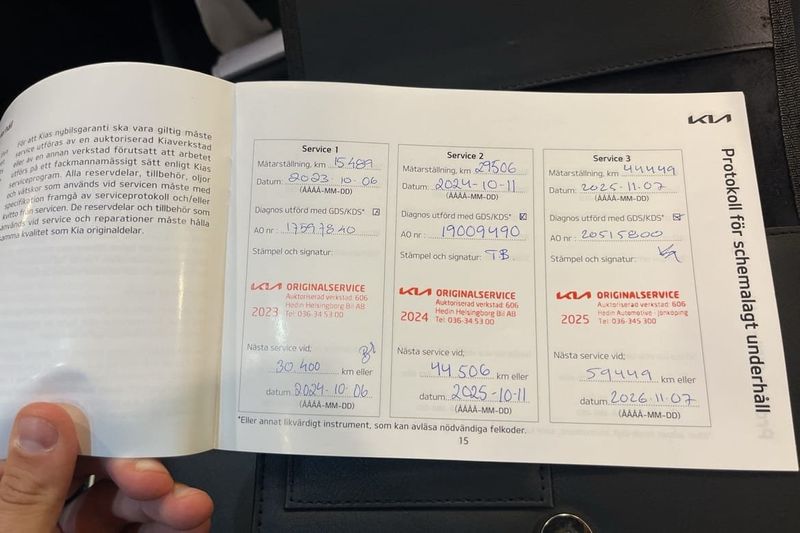 För att Kias nybilsgaranti ska vara giltig måste
service utföras av en auktoriserad Kiaverkstad
eller av en annan verkstad förutsatt att arbetet
utförs på ett fackmannamässigt sätt enligt Kias
Serviceprogram. Alla reservdelar, tillbehör, oljor
och vätskor som används vid servicen måste med
specifikation framgå av serviceprotokoll och/eller
kvitto från servicen. De reservdelar och tillbehör som
används vid service och reparationer måste hålla
samma kvalitet som Kia originaldelar.
KIA
Protokoll för schemalagt underhåll
Service 1
Mätarställning, km 15489
Datum: 2023-10-06
(ÅÅÅÅ-MM-DD)
Diagnos utförd med GDS/KDS*
AO nr: 17597840
Stämpel och signatur:
KIA ORIGINALSERVICE
Auktoriserad verkstad: 606
Hedin Helsingborg Bil AB
2023 Tel: 036-34 53 00
Nästa service vid;
30.400 km eller
datum 2024-10-06
(ÅÅÅÅ-MM-DD)
Service 2
Mätarställning, km 29506
Datum: 2024-10-11
(ÅÅÅÅ-MM-DD)
Diagnos utförd med GDS/KDS*
AO nr: 19009490
Stämpel och signatur: TB.
KIA ORIGINALSERVICE
Auktoriserad verkstad: 606
Hedin Helsingborg Bil AB
2024 Tel: 036-34 53 00
Nästa service vid;
44 506 km eller
datum 2025-10-11
(ÅÅÅÅ-MM-DD)
Service 3
Mätarställning, km 44449
Datum: 2025-11-07
(ÅÅÅÅ-MM-DD)
Diagnos utförd med GDS/KDS*
AO nr: 20515800
Stämpel och signatur:
KIA ORIGINALSERVICE
Auktoriserad verkstad: 606
Hedin Automotive - Jönköping
2025 Tel: 036-345 300
Nästa service vid;
59449 km eller
datum 2026-11-07
(ÅÅÅÅ-MM-DD)
*Eller annat likvärdigt instrument, som kan avläsa nödvändiga felkoder.
15